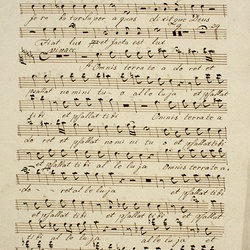 fere ba tur super a quas di xit que Deus
Fiat lux et facta est lux
Omnis terra te a do ret et
psallat no mi ni tu o al le lu ja et psallat tibi
tibi et psallat tibi Omnis terra te a
do ret et psallat no mi ni tu o et psallat tibi
et psallat tibi al le lu ja Omnis terra te a
do ret al le lu ja et psallat tibi
et psallat tibi et psallat tibi et psallat
tibi al le lu ja et psallat tibi